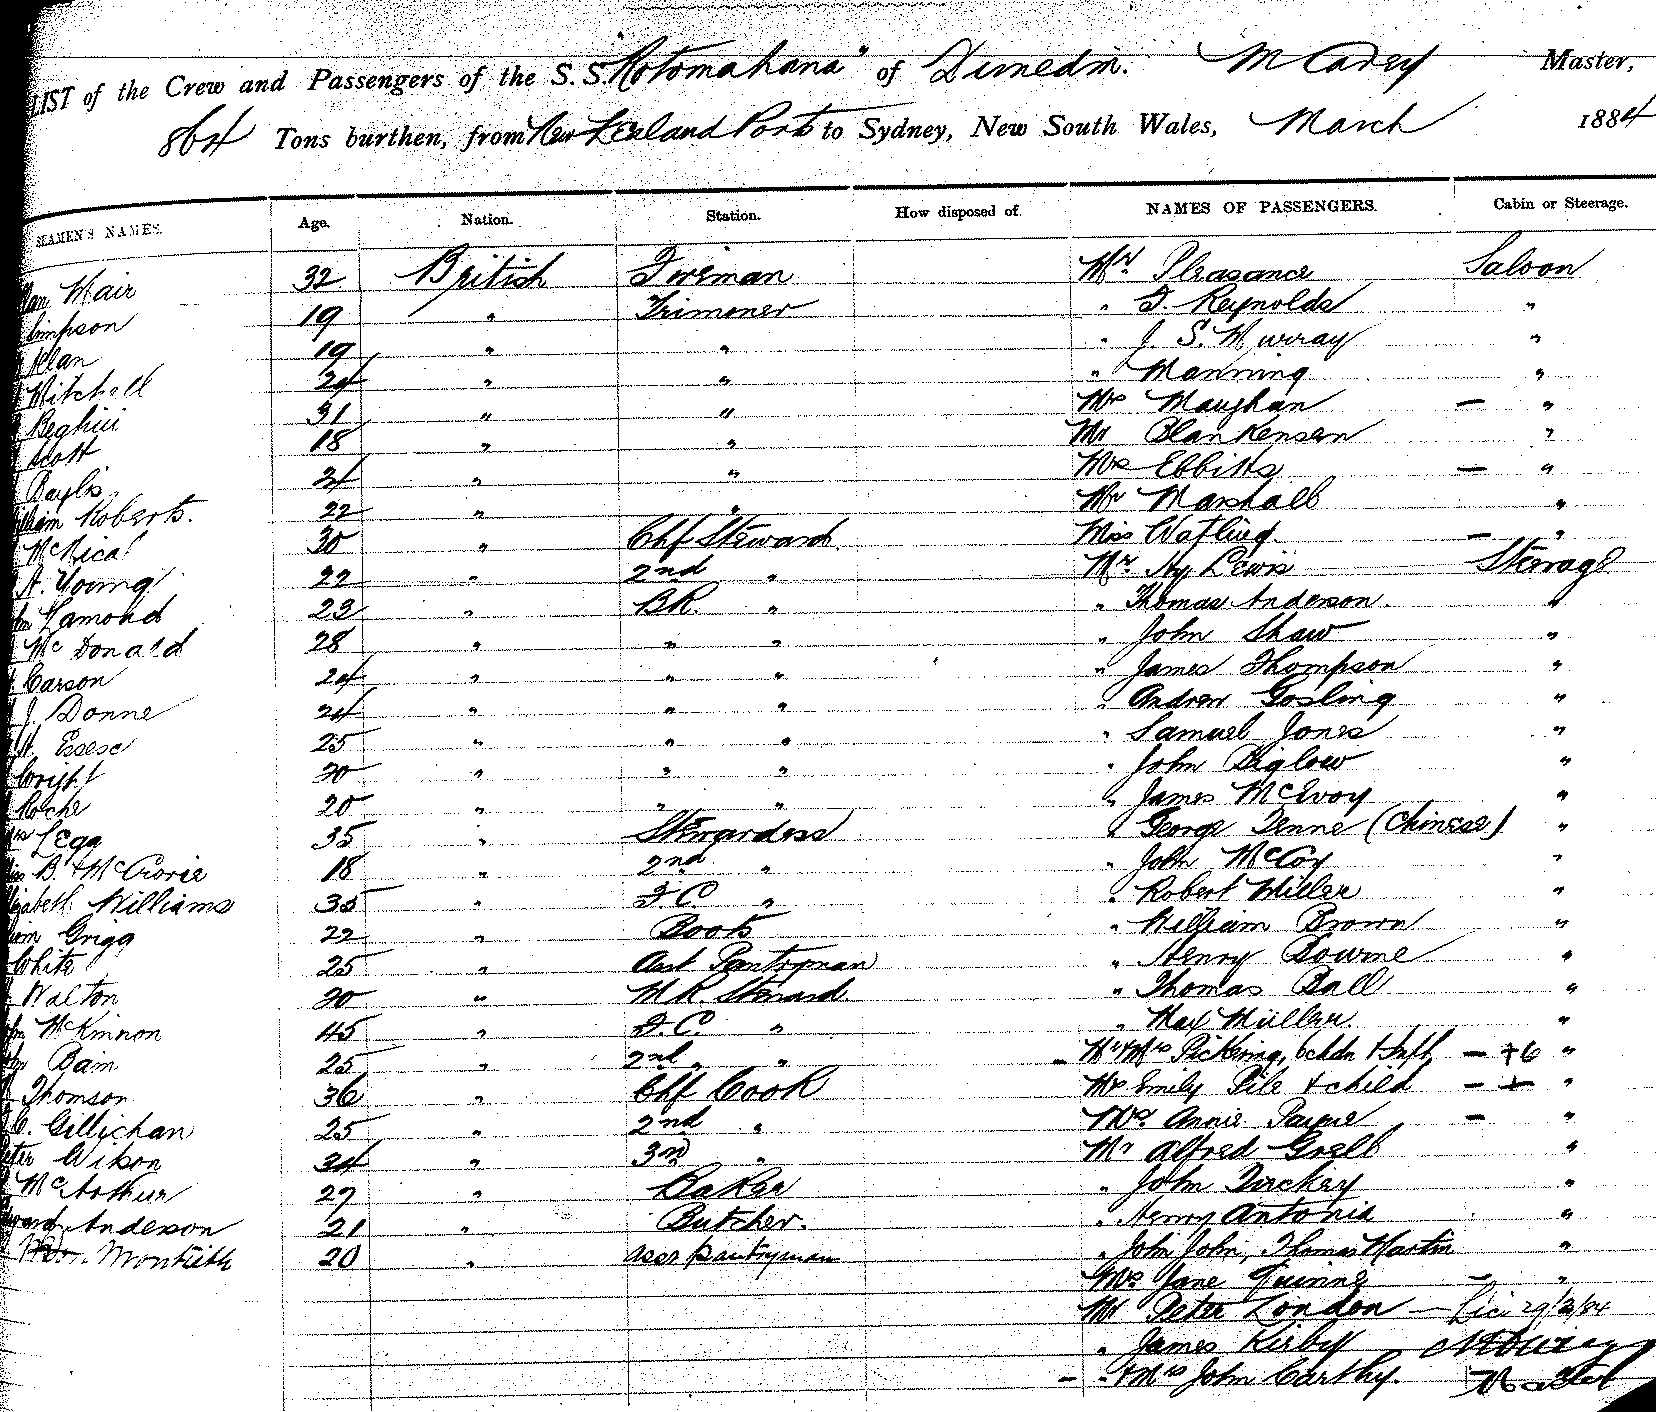 LIST of the Crew and Passengers of the S.S. "Rotomahana" of Dunedin. McCarey Master,
864 Tons burthen, from New Zealand Ports to Sydney, New South Wales, March 1884
SEAMEN'S NAMES. Age. Nation. Station. How disposed of. NAMES OF PASSENGERS. Cabin or Steerage.
Mair 32 British Fireman Mr Pleasance Saloon
Simpson 19 " Trimmer " T. Reynolds "
Allan 19 " " " J. S. Murray "
Mitchell 24 " " " Manning "
31 " " Mrs Maughan — "
Scott 18 " " Mr Blankensen "
Baylis 21 " " Mrs Ebbitts — "
William Roberts. 22 " " Mr Marshall "
30 " Chf Steward Miss Watling. — "
A. Young 22 " 2nd " Mr Hy Lewis Steerage
Lamond 23 " BR. " " Thomas Anderson. "
McDonald 28 " " " " John Shaw "
Carson 24 " " " " James Thompson "
J. Donne 24 " " " " Andrew Gosling "
H. 25 " " " " Samuel Jones "
Wright 20 " " " " John Biglow "
Roche 20 " " " " James McEvoy "
Mrs Legg 35 " Stewardess " George Tenne (Chinese) "
Miss B. McCrorie 18 " 2nd " " John McCoy "
Elizabeth Williams 35 " F.C " " Robert Miller "
Grigg 22 " Boots " William Brown "
White 25 " Asst Pantryman " Henry Bourne "
Walton 20 " M.R. Steward " Thomas Ball "
McKinnon 45 " F.C. " " Max Müller. "
Bain 25 " 2nd " " — Mr & Mrs Pickering, 6 chdn & Inft — +6 "
Thomson 36 " Chf Cook Mrs Emily Pile & child — + "
C. Gillichan 25 " 2nd " Mrs Annie Payne — "
Peter Wilson 34 " 3rd " Mr Alfred Grell "
McArthur 27 " Baker " John Dirckey "
Edward Anderson 21 " Butcher. " Henry Antonia "
Montieth 20 " Asst pantryman " John John, Thomas Martin "
Mrs Jane Quinne — "
Mr Peter London — 29/3/84
" James Kirby
— " & Mrs John Carthy. Master